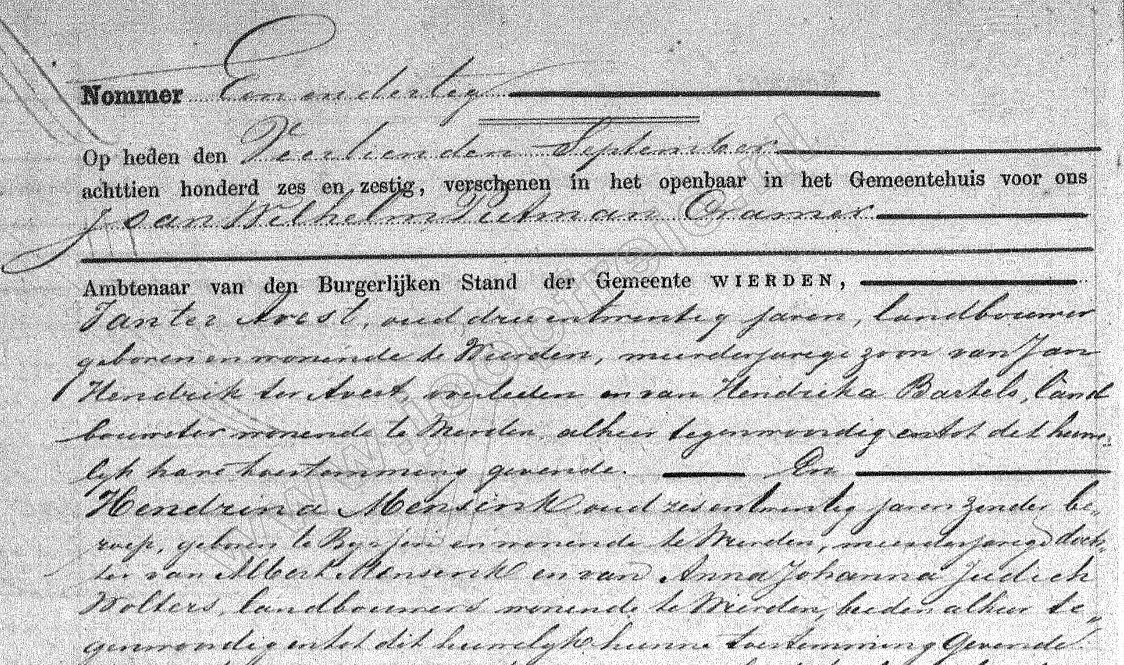 Nommer Een en dertig
Op heden den Veertienden September
achttien honderd zes en zestig, verschenen in het openbaar in het Gemeentehuis voor ons
Joan Wilhelm Pietman Cramer
Ambtenaar van den Burgerlijken Stand der Gemeente WIERDEN,
Jan ter Avest, oud drieentwentig jaren, landbouwer
geboren en wonende te Wierden, meerderjarige zoon van Jan
Hendrik ter Avest, overleden en van Hendrika Bartels, land
bouwster wonende te Wierden, alhier tegenwoordig en tot dit huwe-
lijk hare toestemming gevende. En
Hendrina Mensink oud zesentwentig jaren zonder be-
roep, geboren te en wonende te Wierden, meerderjarige doch-
ter van Albert Mensink en van Anna Johanna Judith
Wolters, landbouwers wonende te Wierden, beiden alhier te-
genwoordig en tot dit huwelijk hunne toestemming gevende.